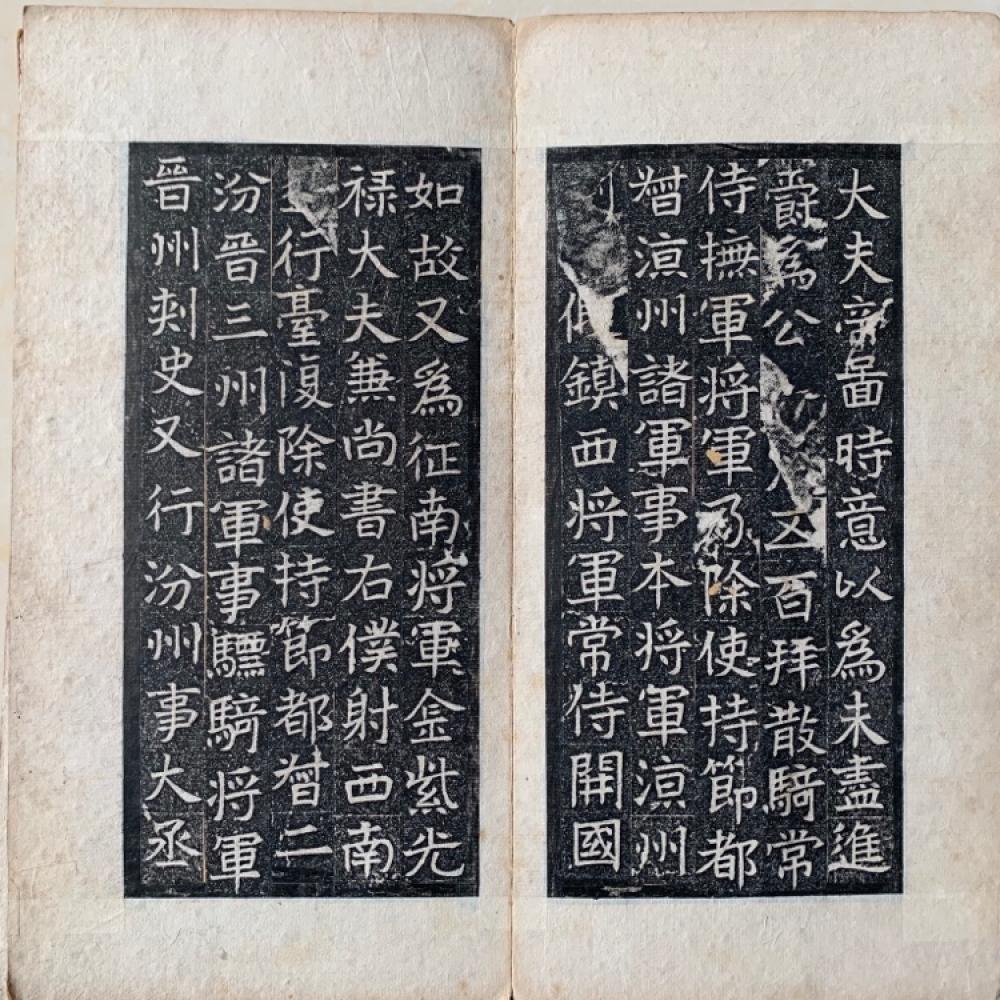 大夫帝啚時意以爲未盡進
爵爲公五百拜散騎常
侍撫軍将軍乃除使持節都
督涼州諸軍事本将軍涼州
鎮西将軍常侍開國
如故又爲征南将軍金紫光
禄大夫兼尚書右僕射西南
行臺復除使持節都督二
汾晉三州諸軍事驃騎将軍
晉州刾史又行汾州事大丞